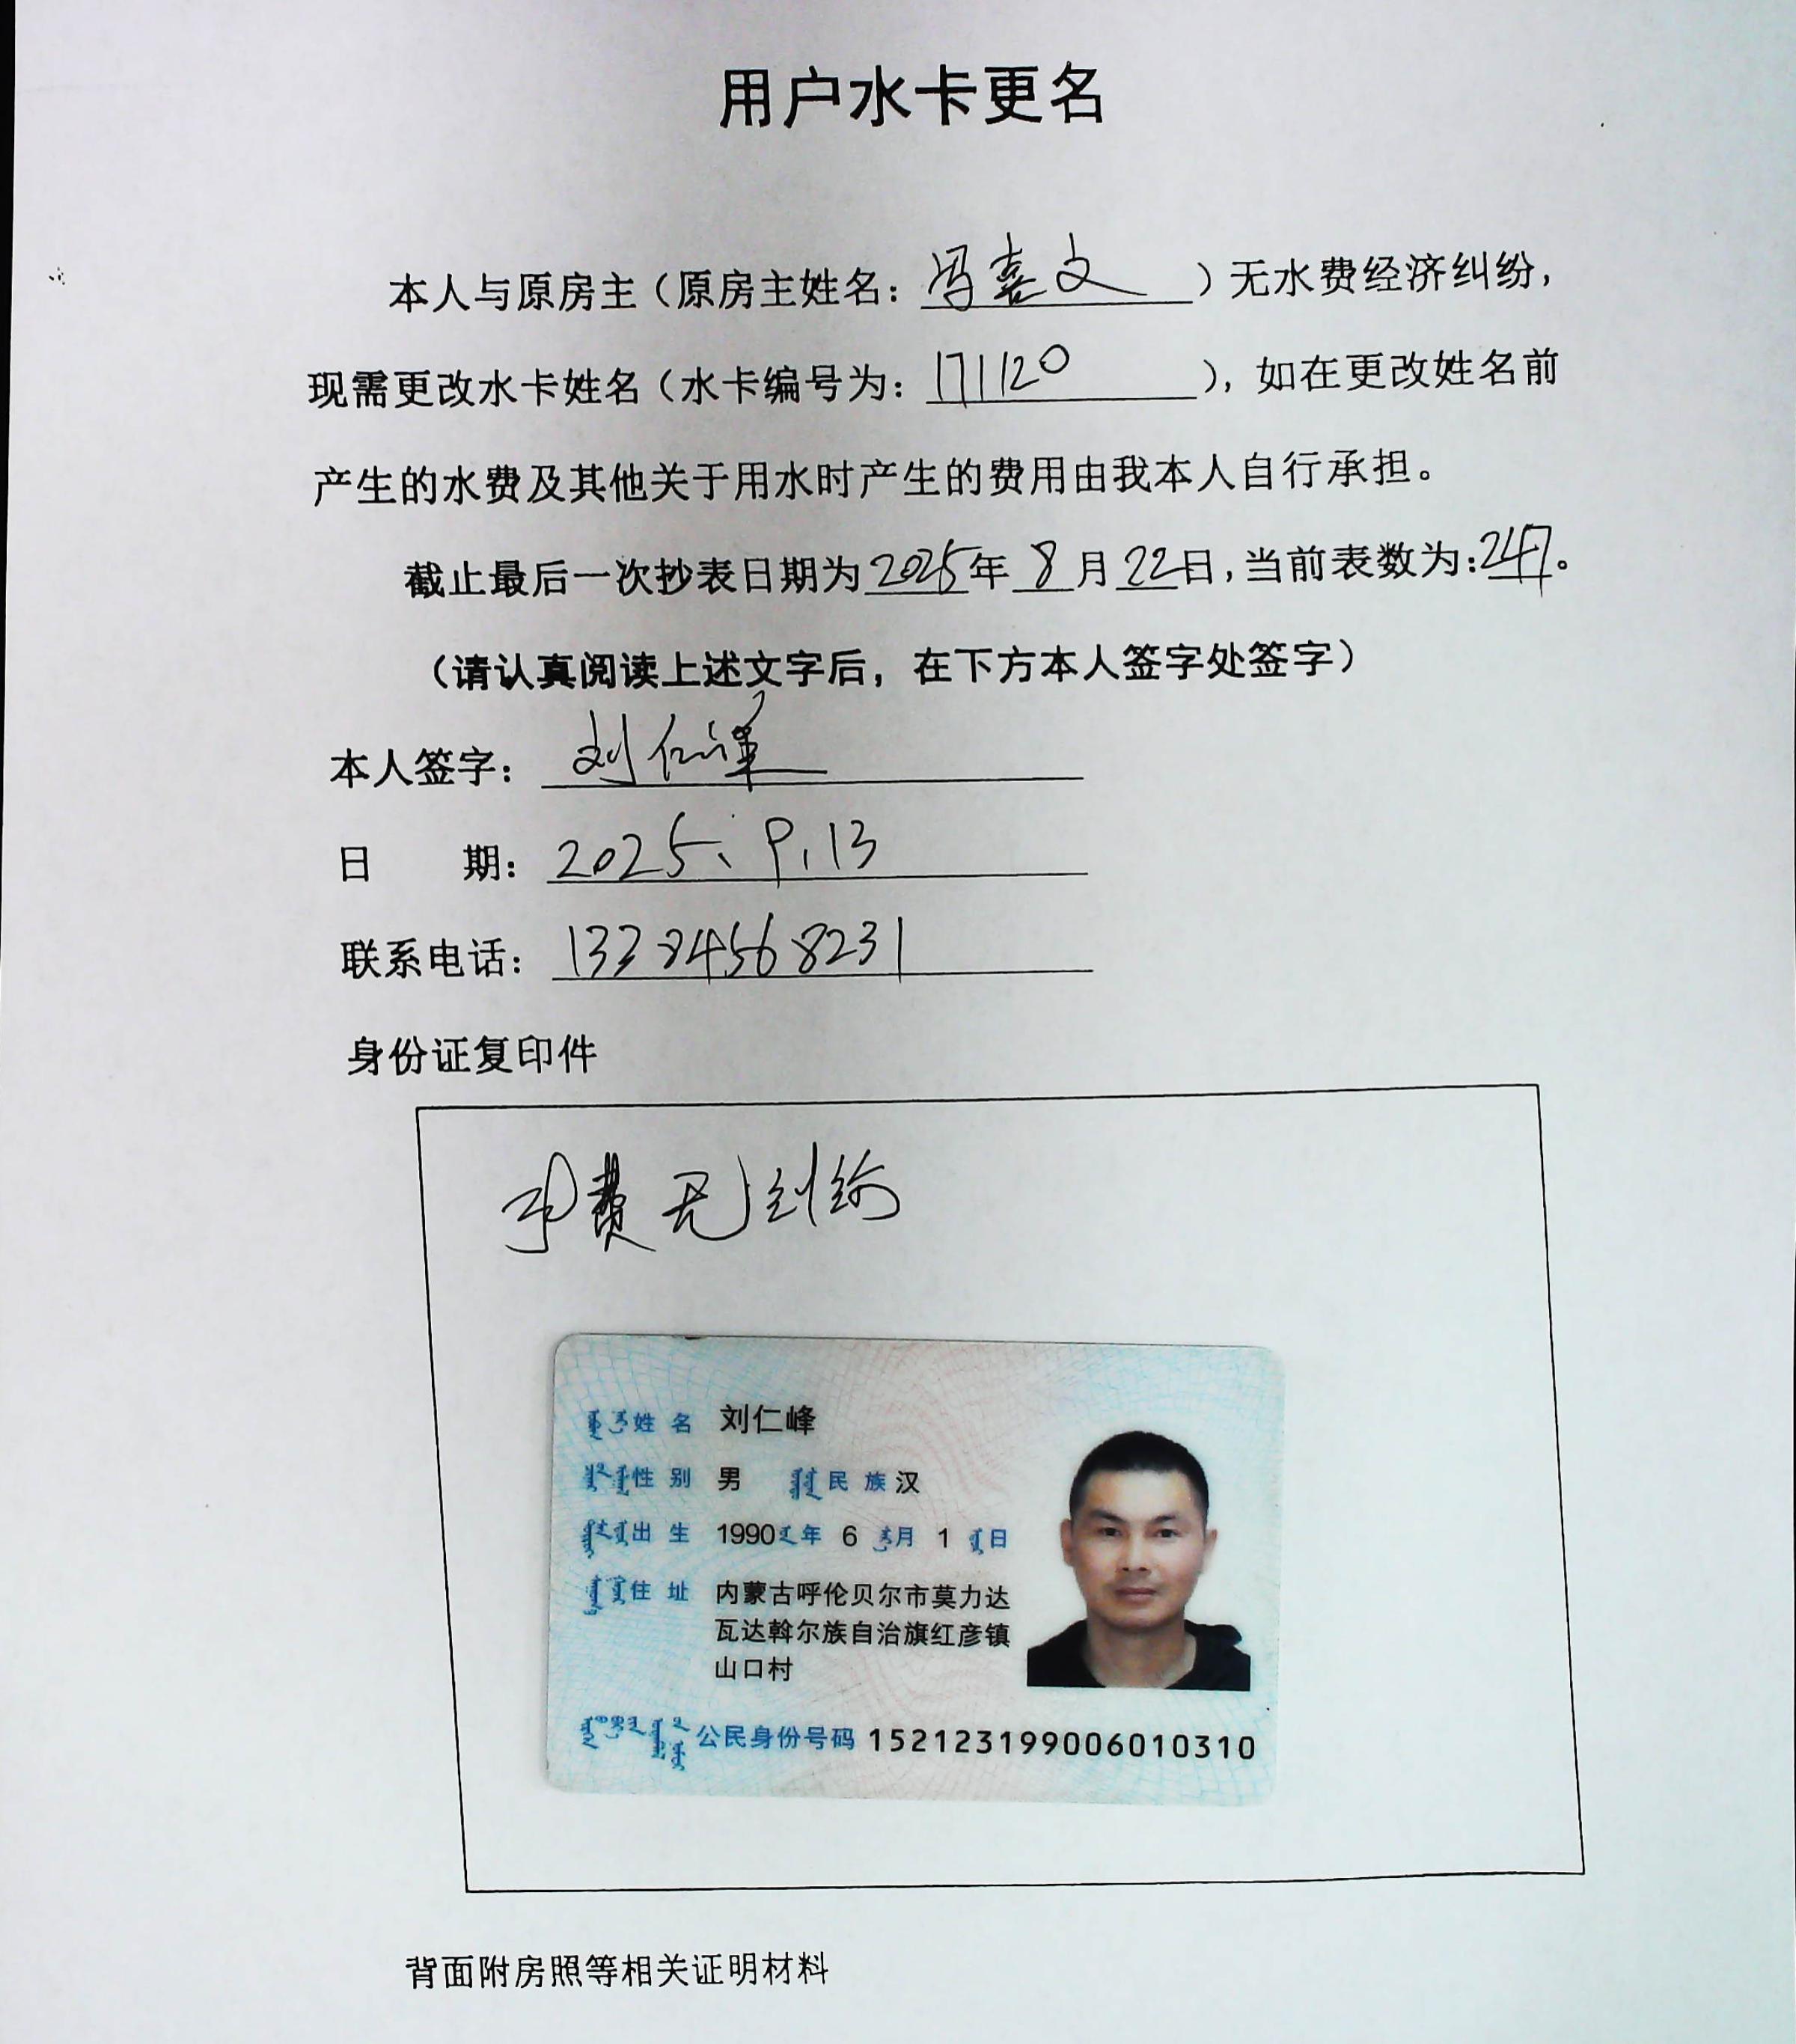 用户水卡更名
本人与原房主（原房主姓名：冯喜文）无水费经济纠纷，
现需更改水卡姓名（水卡编号为：171120），如在更改姓名前
产生的水费及其他关于用水时产生的费用由我本人自行承担。
截止最后一次抄表日期为2025年8月22日，当前表数为：247。
（请认真阅读上述文字后，在下方本人签字处签字）
本人签字：刘仁峰
日 期：2025、9、13
联系电话：13384568231
身份证复印件
水费无纠纷
姓名 刘仁峰
性别 男 民族 汉
出生 1990年6月1日
住址 内蒙古呼伦贝尔市莫力达
瓦达斡尔族自治旗红彦镇
山口村
公民身份号码 152123199006010310
背面附房照等相关证明材料